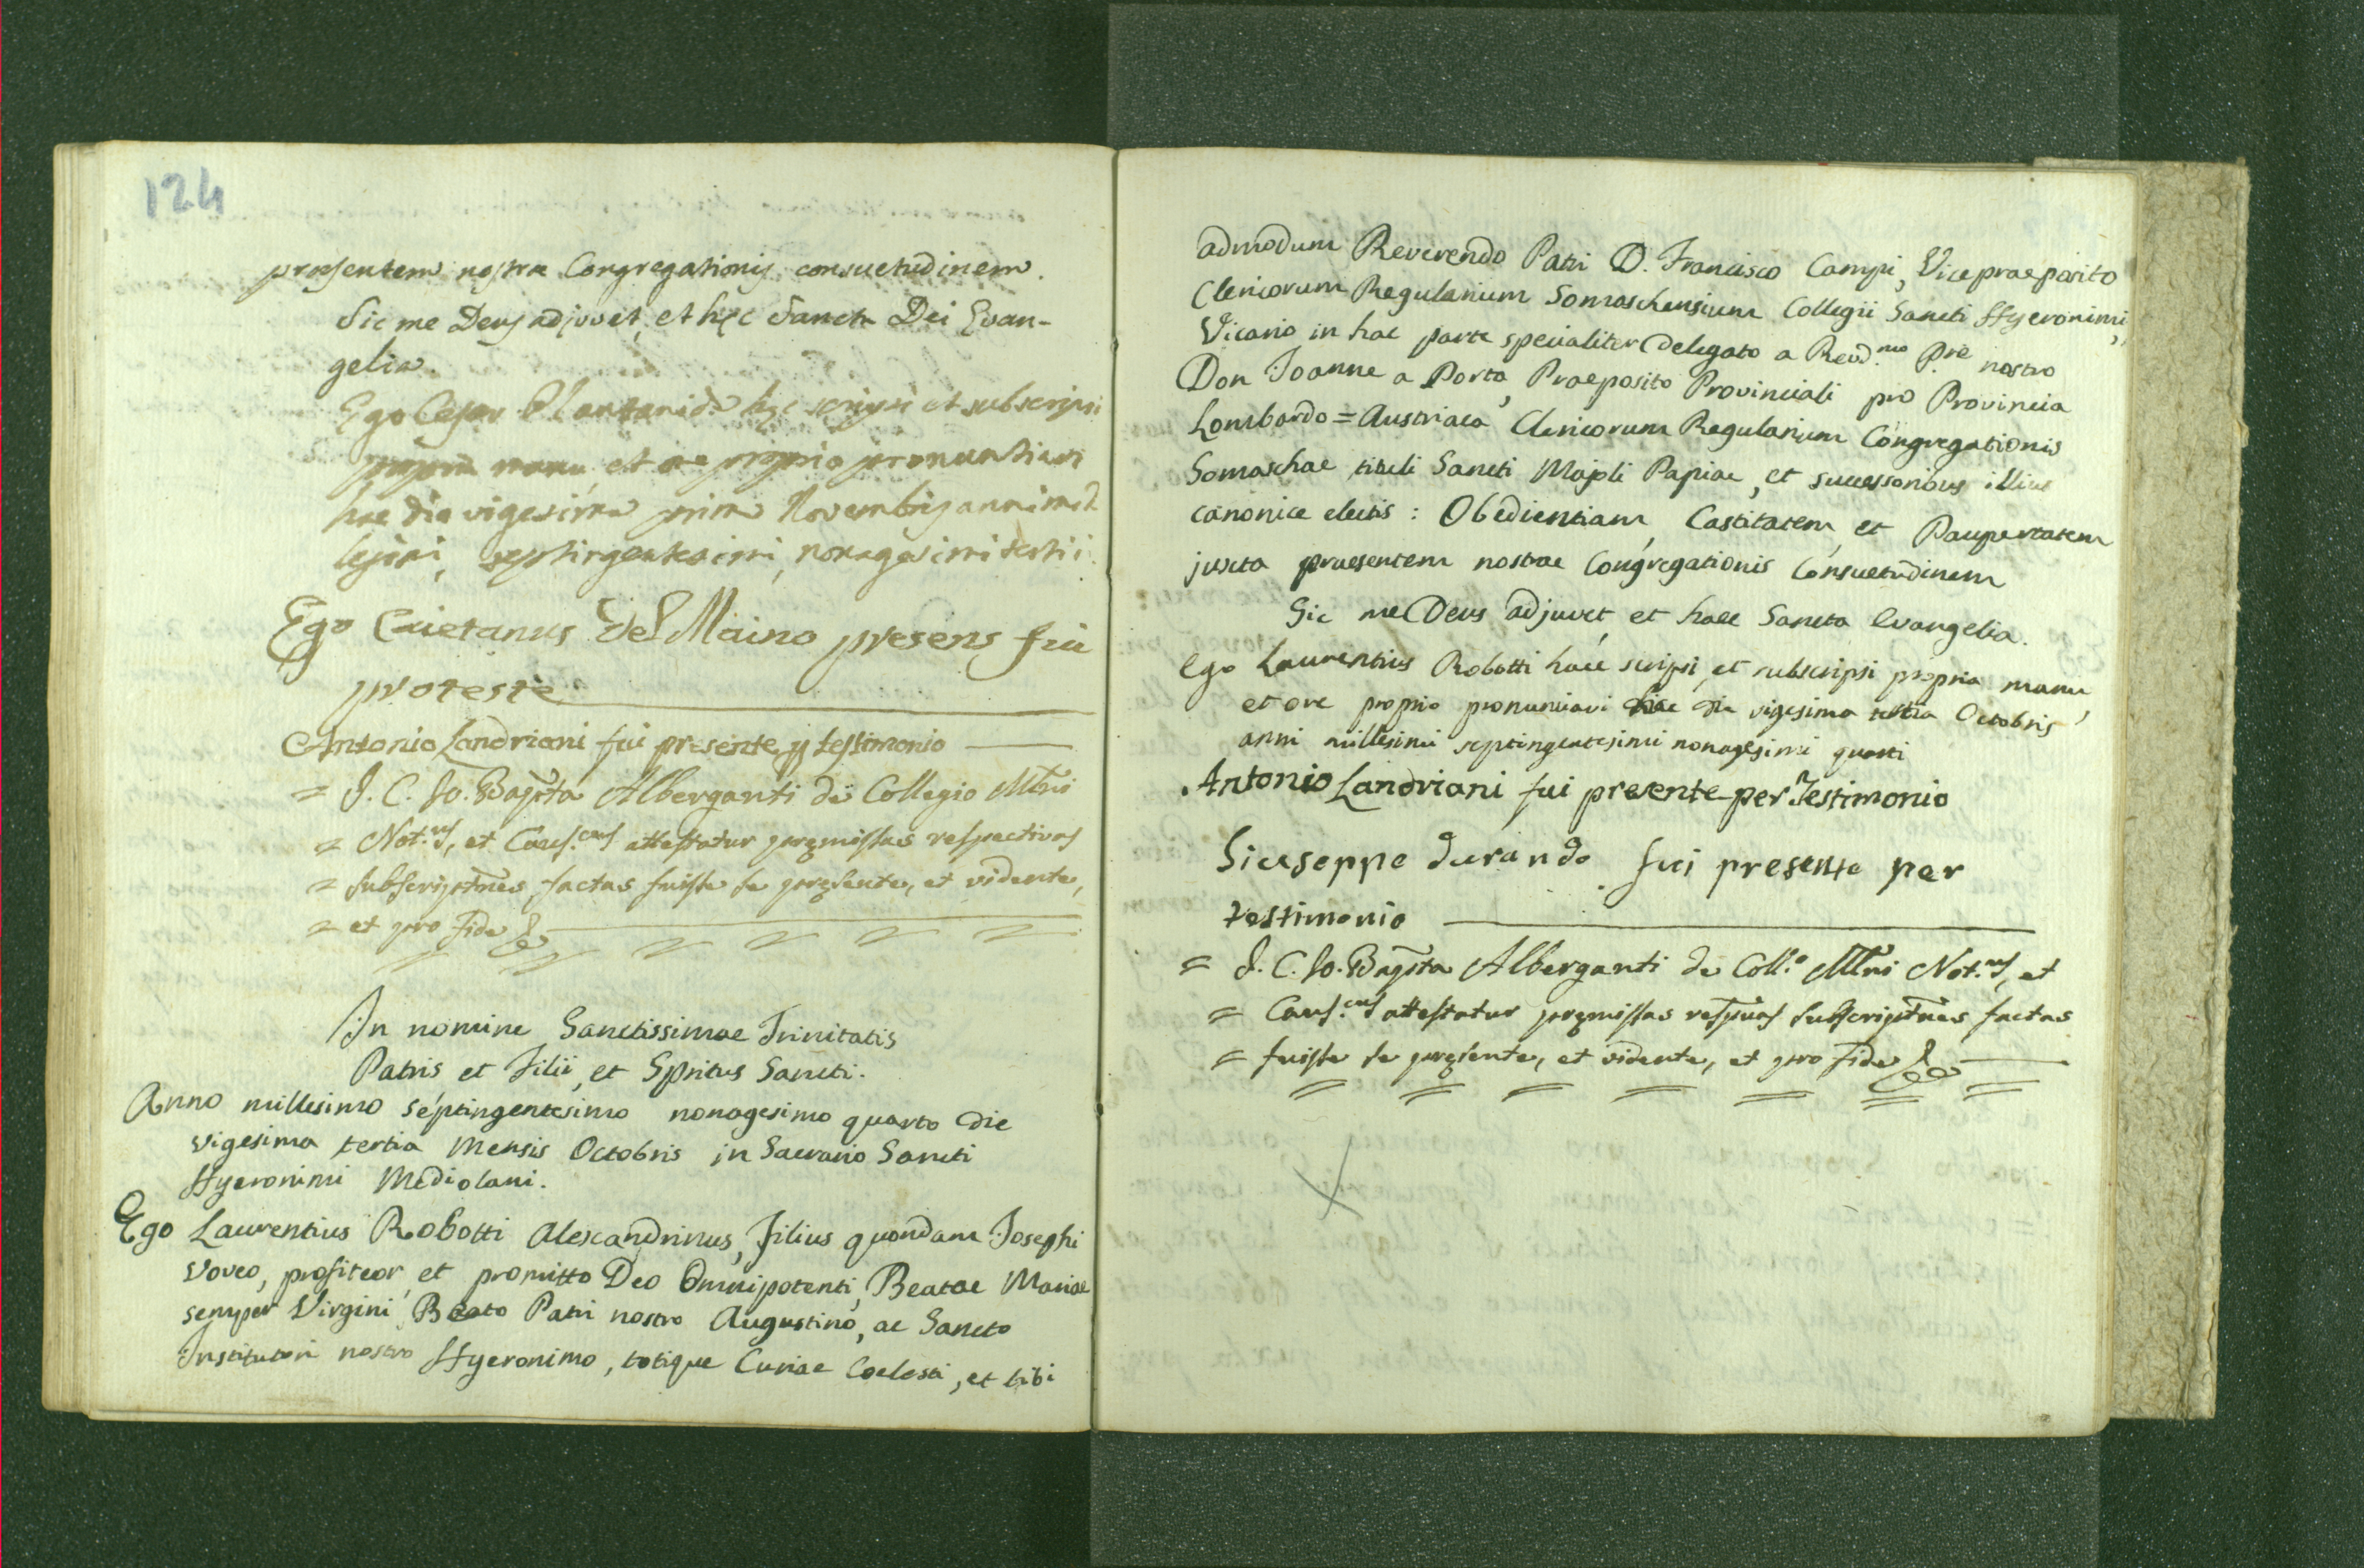 124
praesentem nostrae Congregationis consuetudinem.
Sic me Deus adjuvet, et hęc Sancta Dei Evan-
gelia.
Ego Cesar hęc scripsi et subscripsi
propria manu, et ore proprio pronuntiavi
hac die vigesima prima Novembris anni mil
lesimi, septingentesimi, nonagesimi tertii.
Ego Caietanus del Maino presens fui
pro teste
Antonio Landriani fui presente p testimonio
= J. C. Jo. Bapta Alberganti de Collegio Mlni
= Not.us, et Caus.cus attestatur pręmissas respectivas
= subscriptnes factas fuisse se pręsente, et vidente,
= et pro fide
In nomine Sanctissimae Trinitatis
Patris et Filii, et Spritus Sancti.
Anno millesimo septingentesimo nonagesimo quarto die
vigesima tertia Mensis Octobris in Sacrario Sancti
Hyeronimi Mediolani.
Ego Laurentius Robotti Alexandrinus, Filius quondam Josephi
voveo, profiteor, et promitto Deo Omnipotenti, Beatae Mariae
semper Virgini, Beato Patri nostro Augustino, ac Sancto
Institutori nostro Hyeronimo, totique Curiae Coelesti, et tibi
admodum Reverendo Patri D. Francisco Campi, Vicepraeposito
Clericorum Regularium Somaschensium Collegii Sancti Hyeronimi,
Vicario in hac parte specialiter delegato a Revd.mo Pre nostro
Don Joanne a Porta, Praeposito Provinciali pro Provincia
Lombardo=Austriaca Clericorum Regularium Congregationis
Somaschae tituli Sancti Majoli Papiae, et successoribus illius
canonice electis: Obedientiam, Castitatem, et Paupertatem
juxta praesentem nostrae Congregationis Consuetudinem
Sic me Deus adjuvet, et haec Sancta Evangelia.
Ego Laurentius Robotti haec scripsi, et subscripsi propria manu,
et ore proprio pronunciavi hac die vigesima tertia Octobris
anni millesimi septingentesimi nonagesimi quarti
Antonio Landriani fui presente per Testimonio
Giuseppe durando fui presente per
testimonio
= J. C. Jo. Bapta Alberganti de Coll.o Mlni Not.us, et
= Caus.cus attestatur pręmissas respivas subscriptnes factas
= fuisse se pręsente, et vidente, et pro fide